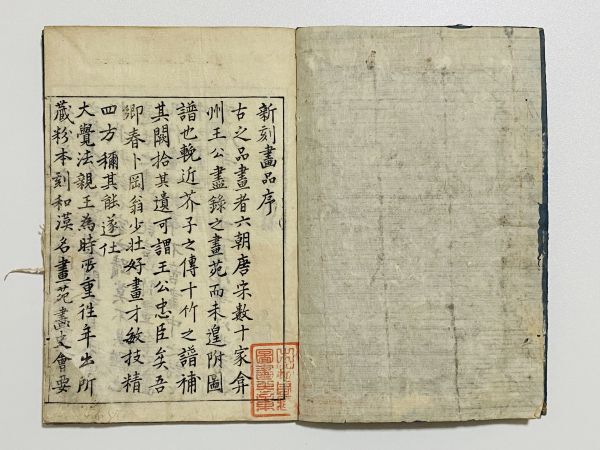 新刻畫品序
古之品畫者六朝唐宋數十家弇
州王公盡錄之畫苑而未遑附圖
譜也輓近芥子之傳十竹之譜補
其闕拾其遺可謂王公忠臣矣吾
鄉春卜岡翁少壯好畫才敏技精
四方稱其能遂仕
大覺法親王為時所重往年出所
藏粉本刻和漢名畫苑畫史會要